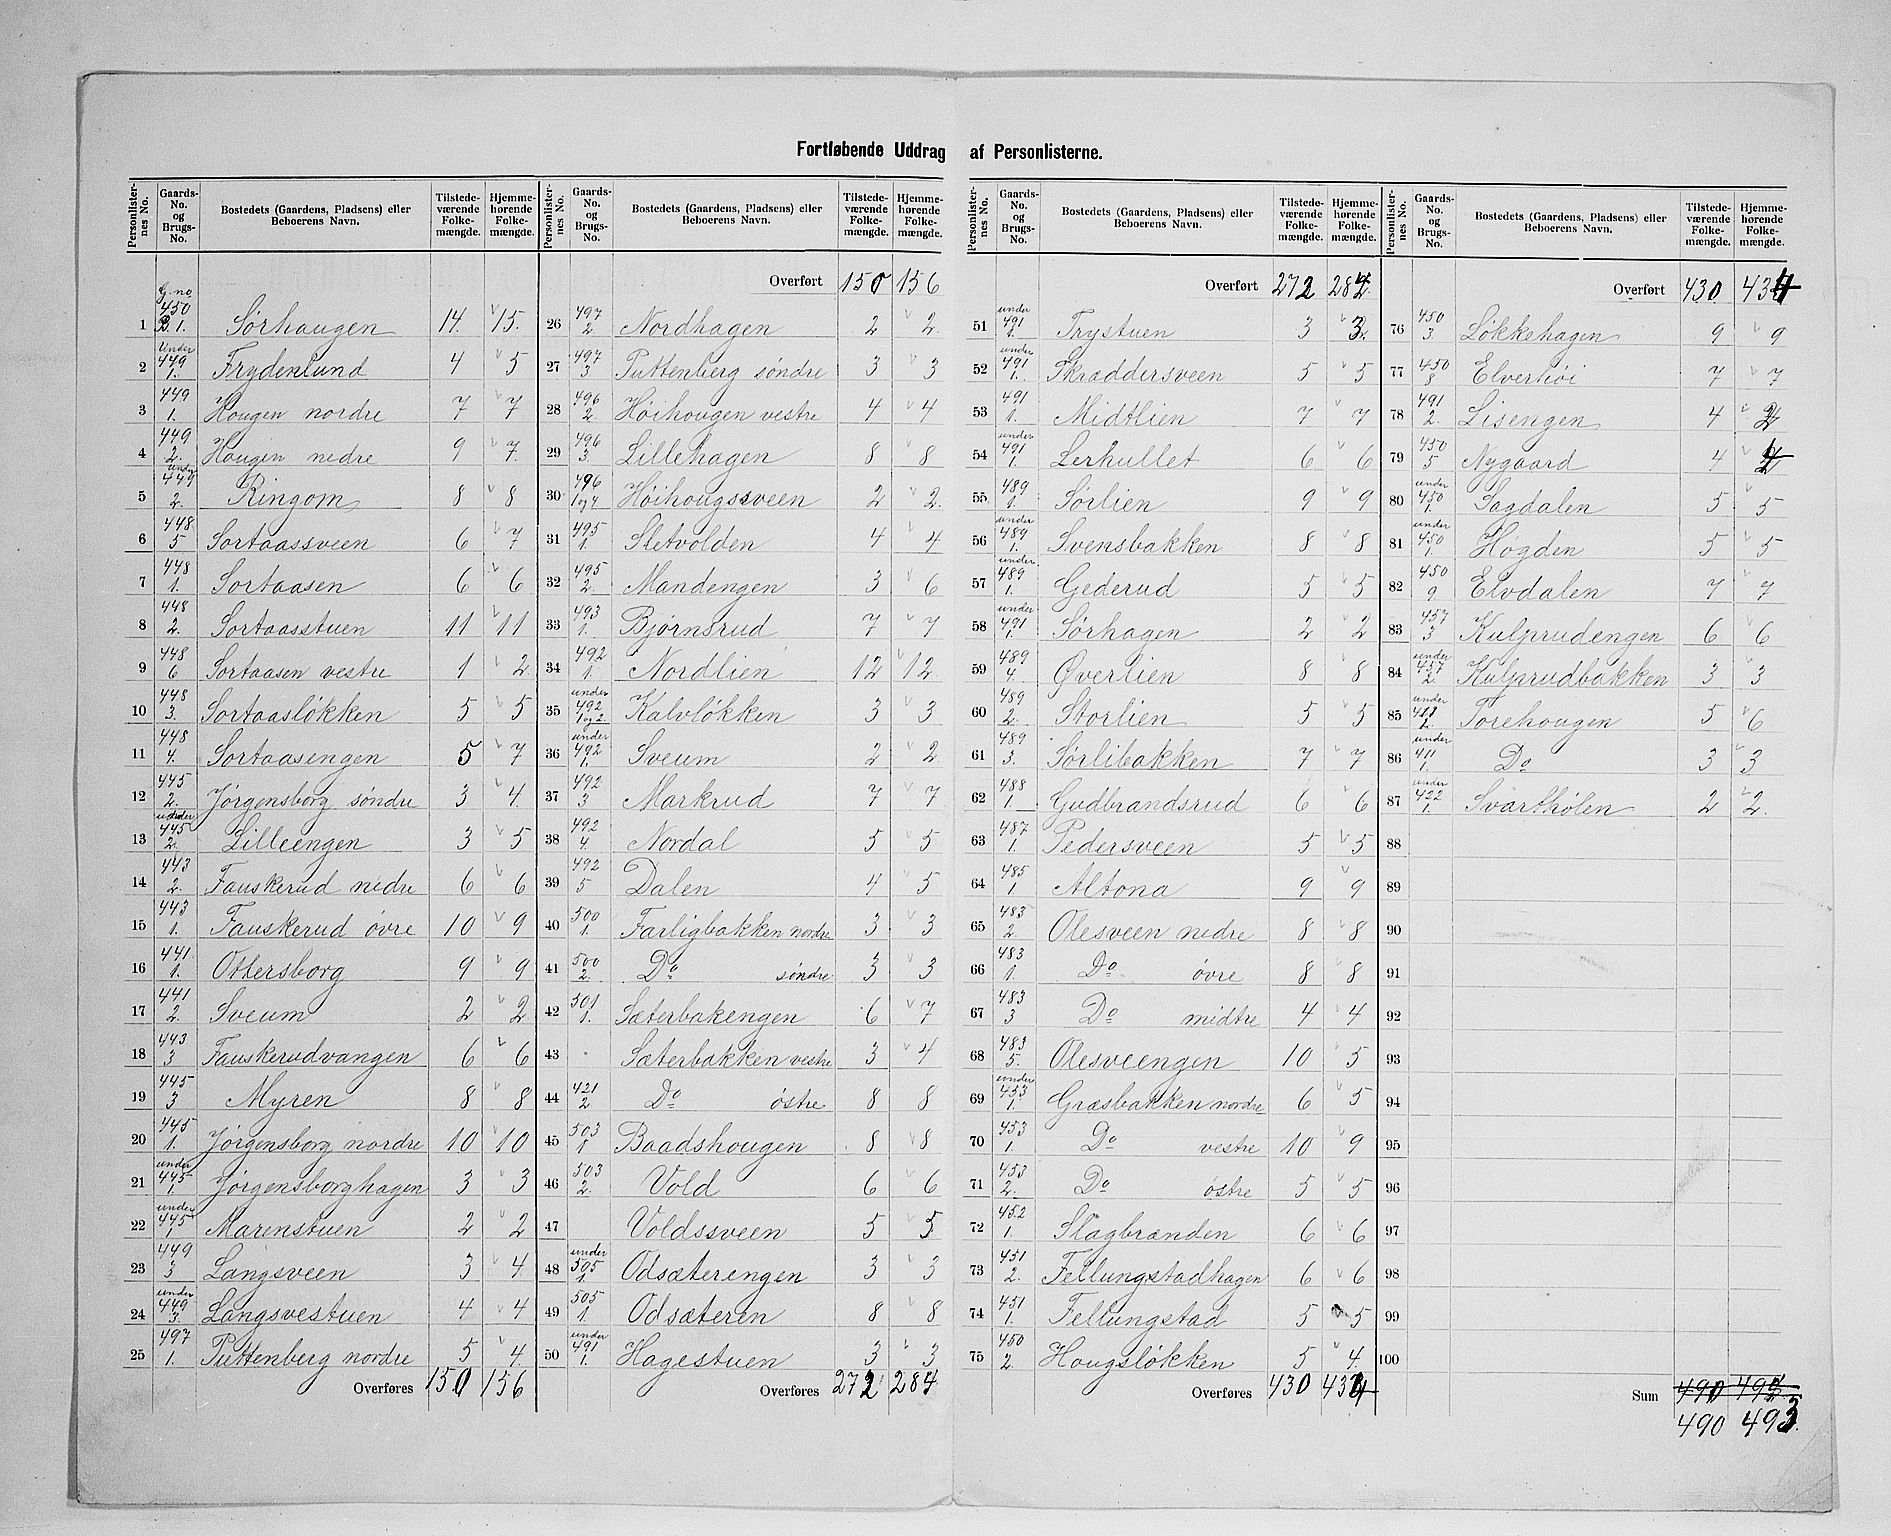 Fortløbende Uddrag af Personlisterne.
Personlisternes No. | Gaards-No. og Brugs-No. | Bostedets (Gaardens, Pladsens) eller Beboerens Navn. | Tilstedeværende Folkemængde. | Hjemmehørende Folkemængde.
1 | G.no 450 B. 1. | Sørhaugen | 14. | 15.
2 | Under 449 1. | Frydenlund | 4 | 5
3 | 449 1. | Hougen nordre | 7 | 7
4 | 449 2. | Hougen nedre | 9 | 7.
5 | under 449 2. | Ringom | 8 | 8
6 | 448 5 | Sortaassveen | 6 | 7
7 | 448 1. | Sortaasen | 6 | 6
8 | 448 2. | Sortaasstuen | 11 | 11
9 | 448 6 | Sortaasen vestre | 1 | 2
10 | 448 3. | Sortaasløkken | 5 | 5
11 | 448 4. | Sortaasengen | 5 | 7
12 | 445 2. | Jørgensborg søndre | 3 | 4.
13 | under 445 2. | Lilleengen | 3 | 5
14 | 443 2. | Fauskerud nedre | 6 | 6
15 | 443 1. | Fauskerud øvre | 10 | 9
16 | 441 1. | Ottersborg | 9 | 9
17 | 441 2. | Sveum | 2 | 2
18 | 443 3 | Fauskerudvangen | 6 | 6
19 | 445 3 | Myren | 8 | 8
20 | 445 1. | Jørgensborg nordre | 10 | 10
21 | under 445 1. | Jørgensborghagen | 3 | 3
22 | under 445 1 | Marenstuen | 2 | 2
23 | 449 3 | Langsveen | 3 | 4.
24 | under 449 3. | Langsvestuen | 4 | 4
25 | 497 1. | Puttenberg nordre | 5 | 4.
Overføres 150 156
Personlisternes No. | Gaards-No. og Brugs-No. | Bostedets (Gaardens, Pladsens) eller Beboerens Navn. | Tilstedeværende Folkemængde. | Hjemmehørende Folkemængde.
Overført 150 156
26 | 497 2. | Nordhagen | 2 | 2.
27 | 497 3 | Puttenberg søndre | 3 | 3
28 | 496 2. | Høihougen vestre | 4 | 4
29 | 496 3. | Lillehagen | 8 | 8
30 | 496 1 og 4 | Høihougssveen | 2 | 2.
31 | 495 1. | Sletvolden | 4 | 4
32 | 495 2. | Mandengen | 3 | 6
33 | 493 1. | Bjørnsrud | 7 | 7
34 | 492 1. | Nordlien | 12 | 12
35 | under 492 1 og 2 | Kalvløkken | 3 | 3
36 | under 492 1. | Sveum | 2 | 2
37 | 492 3 | Markrud | 7 | 7
38 | 492 4. | Nordal | 5 | 5
39 | 492 5 | Dalen | 4 | 5
40 | 500 1. | Farligbakken nordre | 3 | 3
41 | 500 2. | Do søndre | 3 | 3
42 | 501 1. | Sæterbakengen | 6 | 7
43 | Sæterbakken vestre | 3 | 4
44 | 421 2 | Do østre | 8 | 8
45 | 503 1 | Baadshougen | 8 | 8
46 | 503 2. | Vold | 6 | 6
47 | Voldssveen | 5 | 5
48 | under 505 1. | Odsæterengen | 3 | 3
49 | 505 1. | Odsæteren | 8 | 8
50 | under 491 1. | Hagestuen | 3 | 3
Overføres 272 284
Personlisternes No. | Gaards-No. og Brugs-No. | Bostedets (Gaardens, Pladsens) eller Beboerens Navn. | Tilstedeværende Folkemængde. | Hjemmehørende Folkemængde.
Overført 272 284
51 | under 491 1. | Trystuen | 3 | 3.
52 | under 491 1. | Skræddersveen | 5 | 5
53 | 491 1. | Midtlien | 7 | 7
54 | under 491 1. | Lerhullet | 6 | 6
55 | 489 1. | Sørlien | 9 | 9
56 | under 489 1. | Svensbakken | 8 | 8
57 | under 489 1. | Gederud | 5 | 5
58 | under 491 1. | Sørhagen | 2 | 2
59 | 489 4. | Øverlien | 8 | 8
60 | 489 2. | Storlien | 5 | 5
61 | 489 3. | Sørlibakken | 7 | 7
62 | 488 1. | Gudbrandsrud | 6 | 6
63 | 487 1 | Pedersveen | 5 | 5
64 | 485 1 | Altona | 9 | 9
65 | 483 2. | Olesveen nedre | 8 | 8
66 | 483 1. | Do øvre | 8 | 8
67 | 483 3 | Do midtre | 4 | 4
68 | 483 5. | Olesveengen | 10 | 5
69 | under 453 1. | Græsbakken nordre | 6 | 5
70 | 453 1. | Do vestre | 10 | 9
71 | 453 2. | Do østre | 5 | 5
72 | 452 1. | Slagbrænden | 6 | 6
73 | 451 2. | Fellungstadhagen | 6 | 6
74 | 451 1. | Fellungstad | 5 | 5
75 | 450 2. | Hougsløkken | 5 | 4.
Overføres 430 434
Personlisternes No. | Gaards-No. og Brugs-No. | Bostedets (Gaardens, Pladsens) eller Beboerens Navn. | Tilstedeværende Folkemængde. | Hjemmehørende Folkemængde.
Overført 430 434
76 | 450 3. | Løkkehagen | 9 | 9
77 | 450 8 | Elverhøi | 7 | 7
78 | 491 2. | Lisengen | 4 | 2
79 | 450 5 | Nygaard | 4 | 4
80 | under 450 1. | Sagdalen | 5 | 5
81 | under 450 1. | Høgden | 5 | 5
82 | 450 9. | Elvdalen | 7 | 7
83 | 457 3 | Kulprudengen | 6 | 6
84 | under 457 2. | Kulprudbakken | 3 | 3
85 | under | Torehougen | 5 | 6
86 | under 411 1. | Do | 3 | 3
87 | under 422 1. | Svarthølen | 2 | 2.
88
89
90
91
92
93
94
95
96
97
98
99
100
Sum 490 492
490 493.